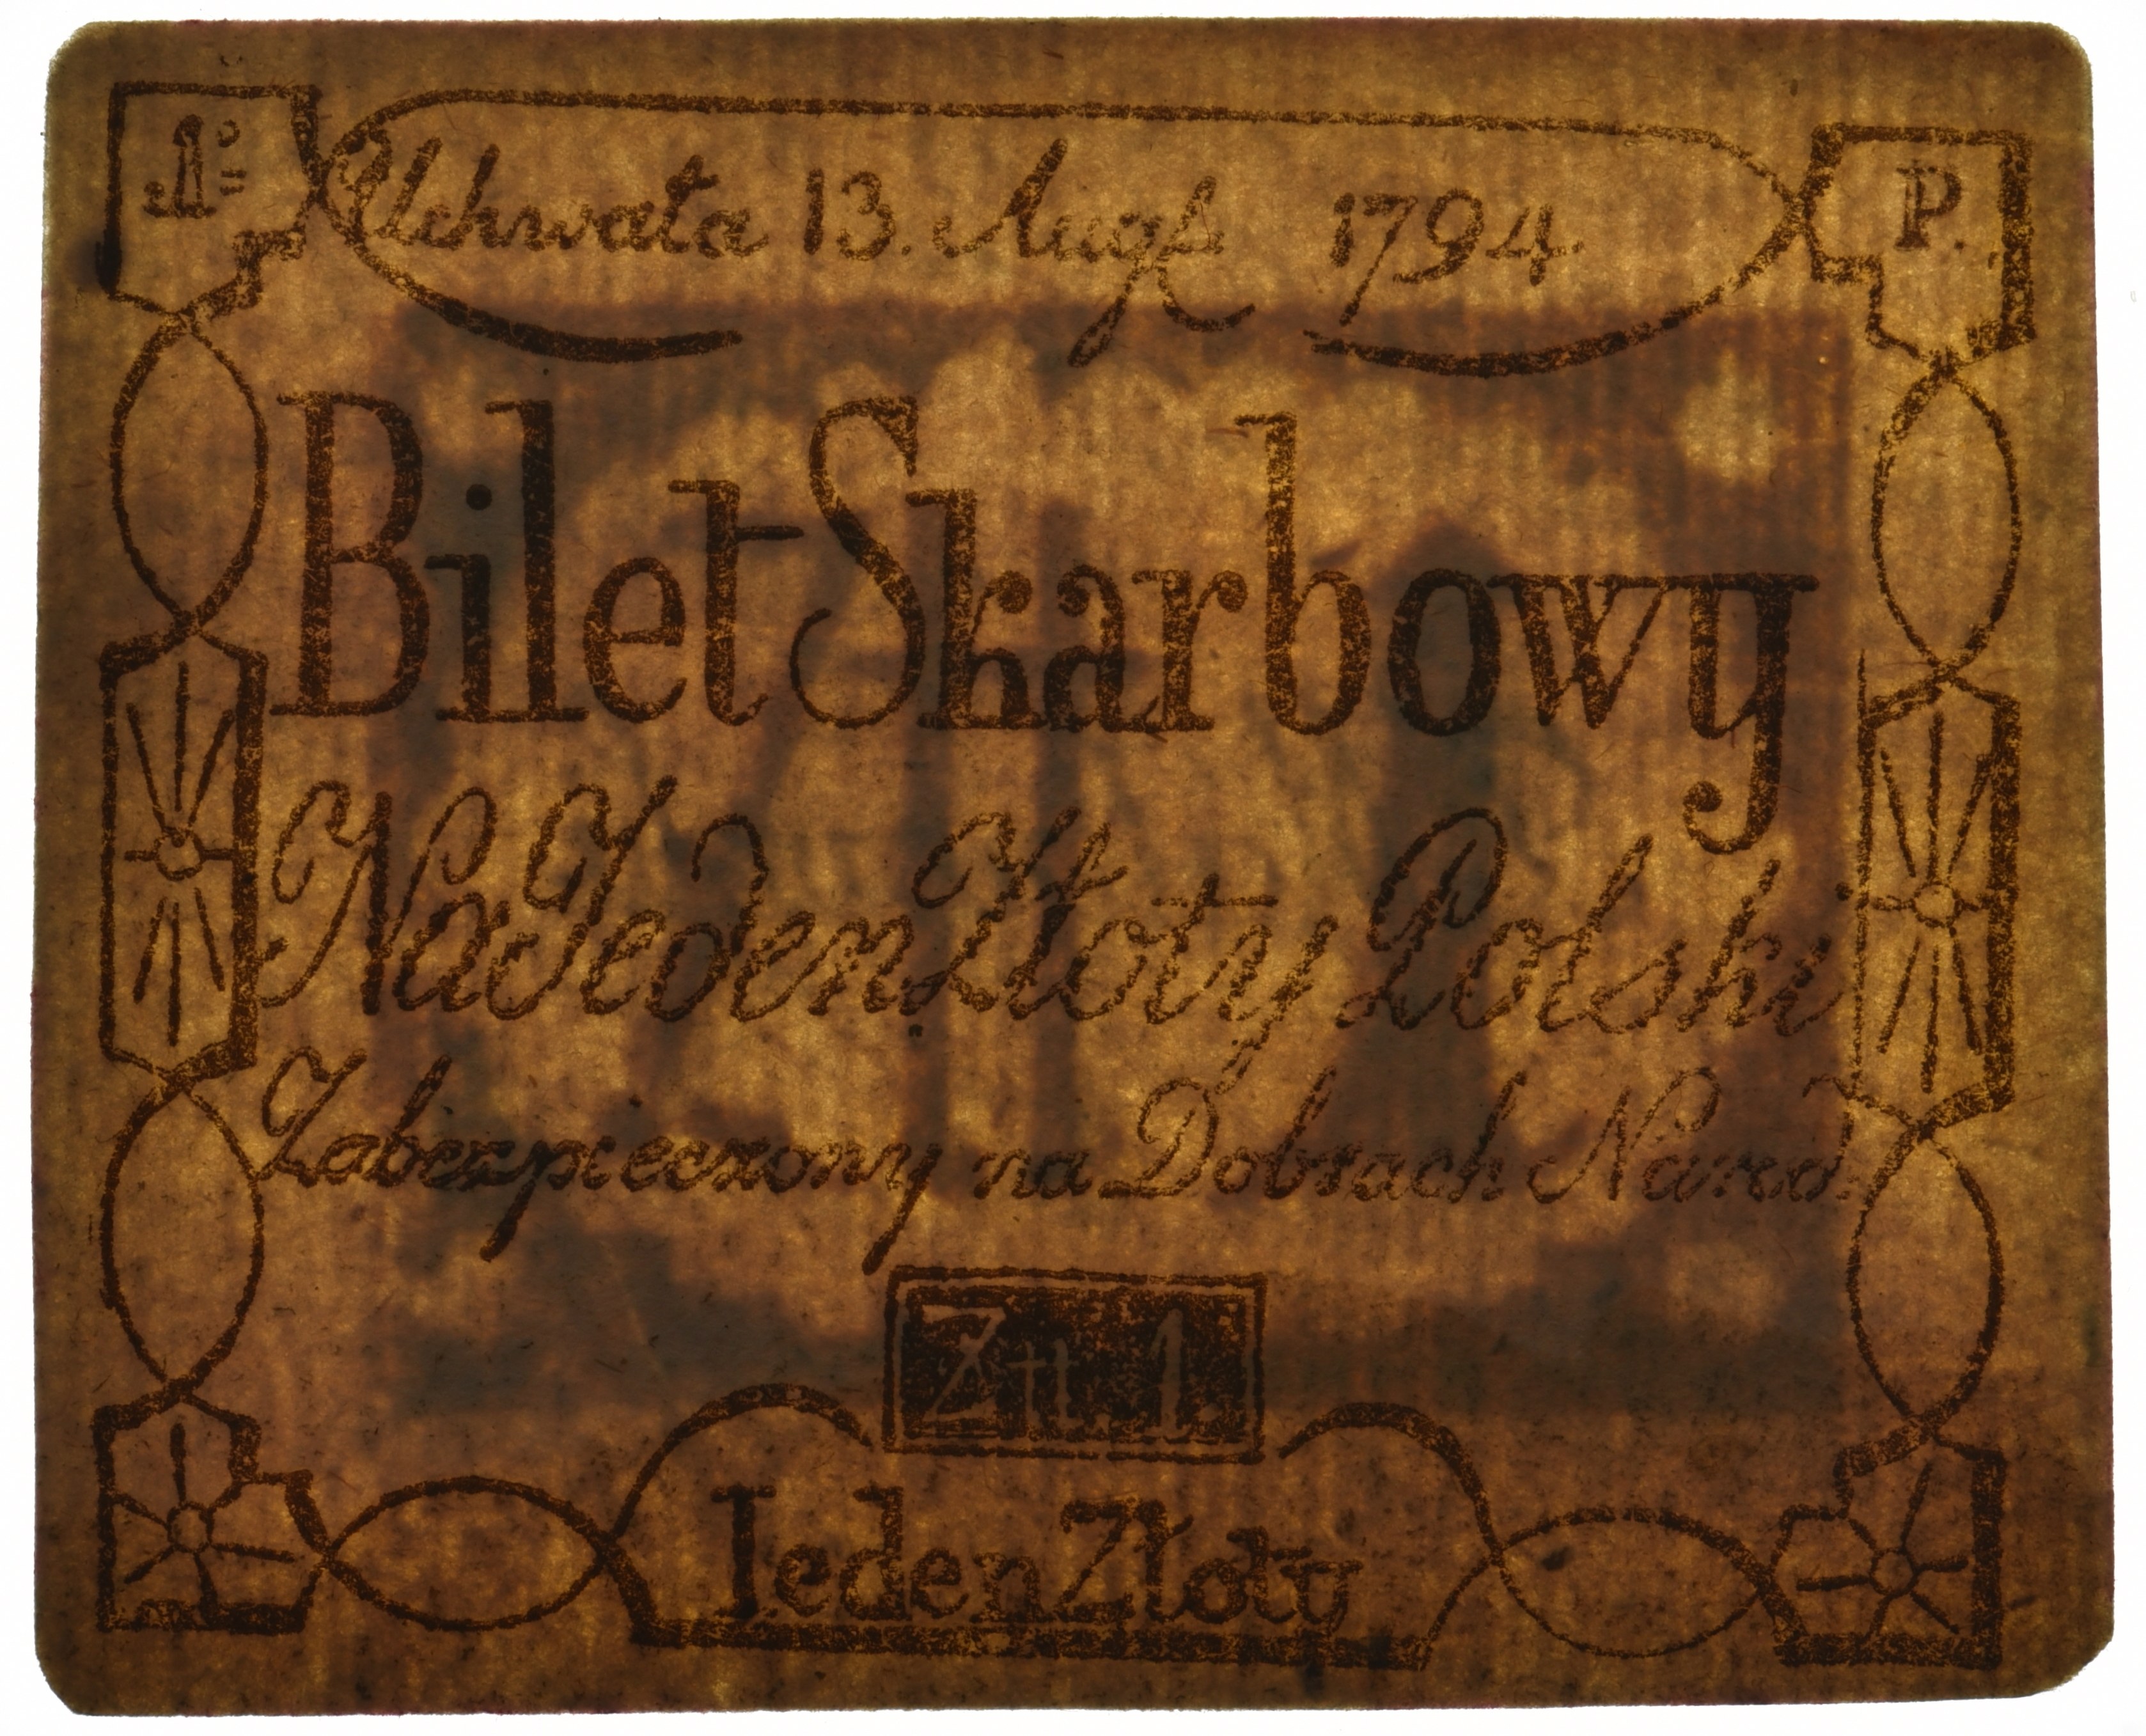 1º= Uchwała 13. Augś 1794. P.
Bilet Skarbowy
Na Jeden Złoty Polski
Zabezpieczony na Dobrach Narod.
Złł. 1.
Ieden Złoty